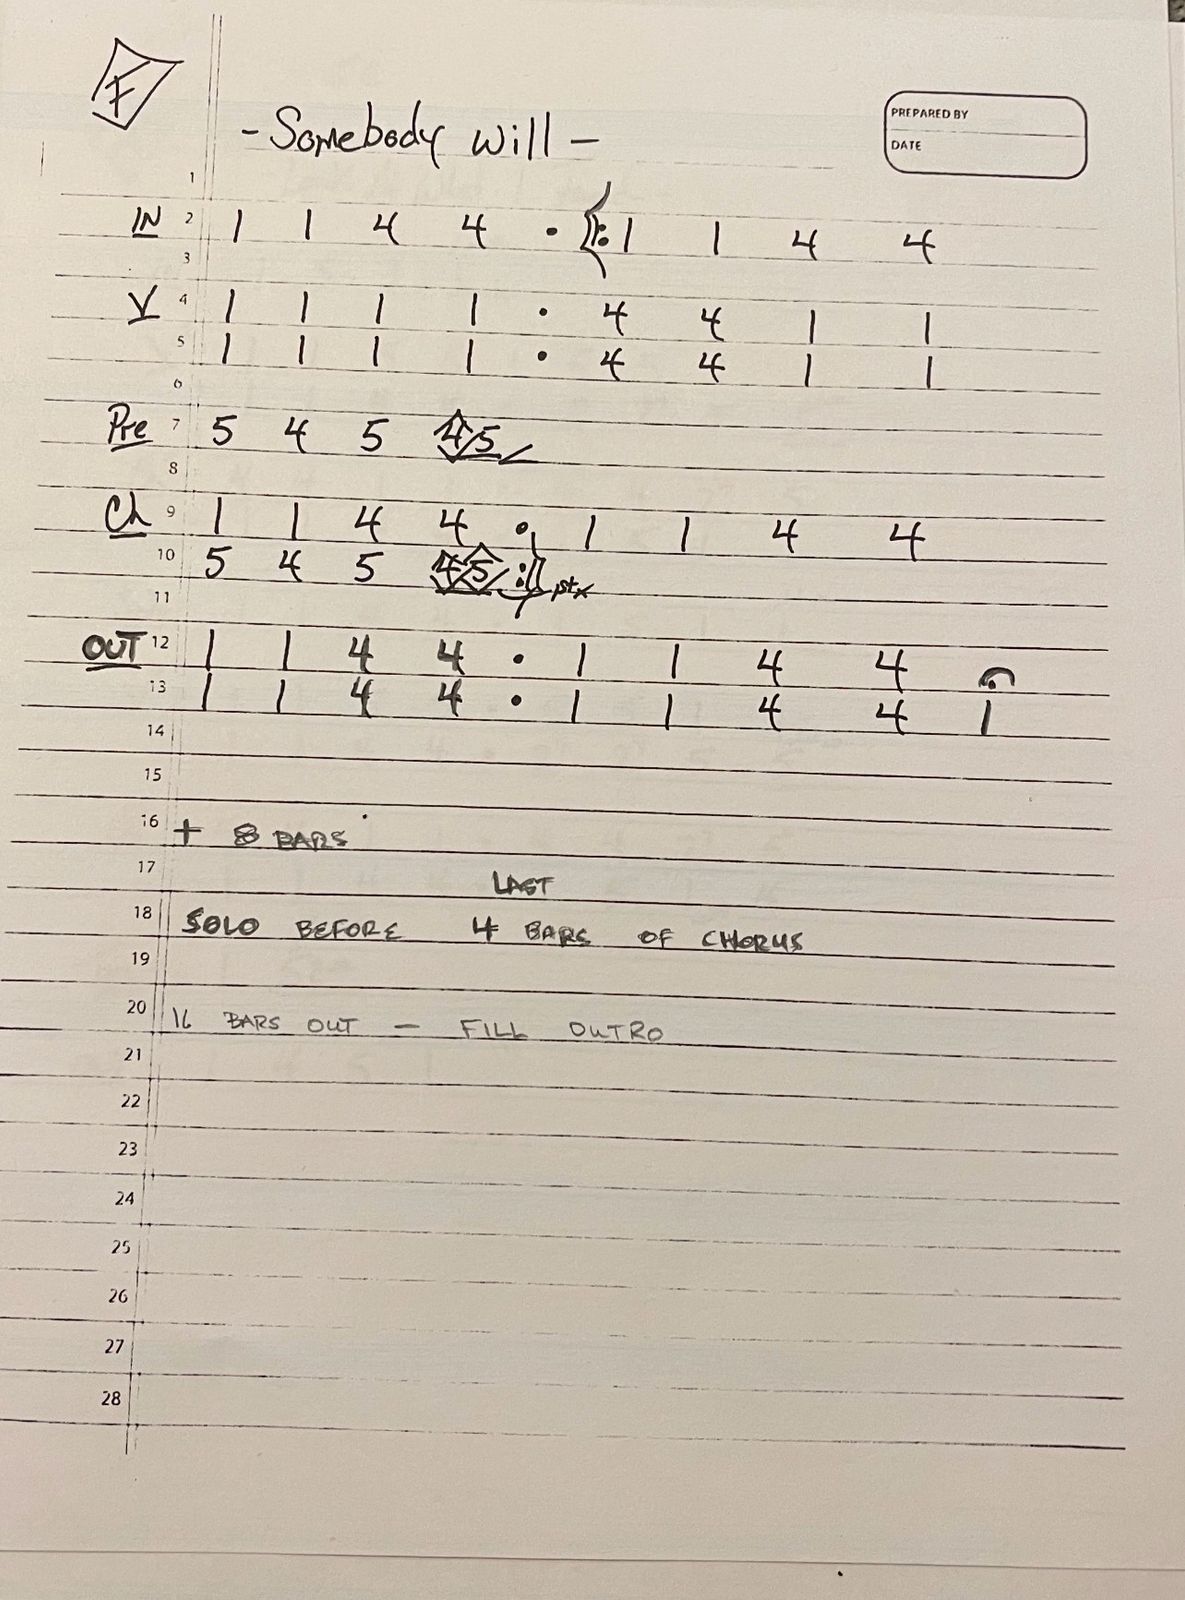 F
- Somebody Will -
PREPARED BY
DATE
1
IN 2 1 1 4 4 • {‖: 1 1 4 4
3
V 4 1 1 1 1 • 4 4 1 1
5 1 1 1 1 • 4 4 1 1
6
Pre 7 5 4 5 4/5
8
Ch 9 1 1 4 4 • 1 1 4 4
10 5 4 5 4/5 :‖}
11
OUT 12 1 1 4 4 • 1 1 4 4
13 1 1 4 4 • 1 1 4 4 1
14
15
16 + 8 BARS
17 LAST
18 SOLO BEFORE 4 BARS OF CHORUS
19
20 16 BARS OUT — FILL OUTRO
21
22
23
24
25
26
27
28